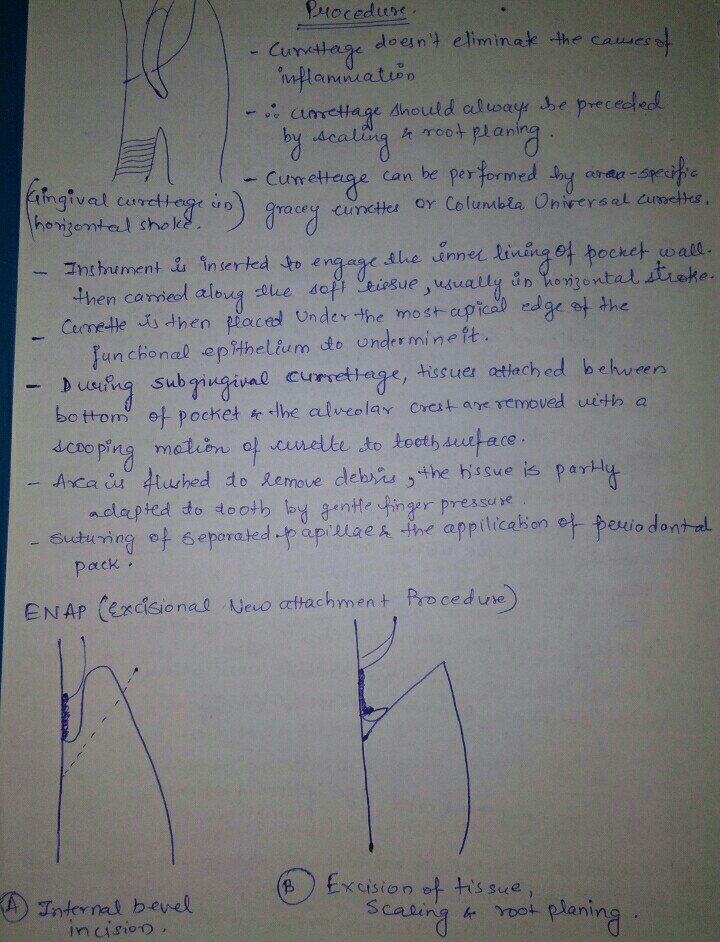 Procedure.
- Curettage doesn't eliminate the causes of
inflammation
- ∴ currettage should always be preceded
by scaling & root planing.
- Currettage can be performed by area-specific
gracey curettes or Columbia Universal curettes.
(Gingival curettage in
horizontal stroke.)
- Instrument is inserted to engage the inner lining of pocket wall.
then carried along the soft tissue, usually in horizontal stroke.
- Curette is then placed under the most apical edge of the
junctional epithelium to undermine it.
- During subgingival currettage, tissues attached between
bottom of pocket & the alveolar crest are removed with a
scooping motion of curette to tooth surface.
- Area is flushed to remove debris, the tissue is partly
adapted to tooth by gentle finger pressure.
- Suturing of separated papillae & the appilication of periodontal
pack.
ENAP (Excisional New attachment Procedure)
(A) Internal bevel
incision.
(B) Excision of tissue,
Scaling & root planing.